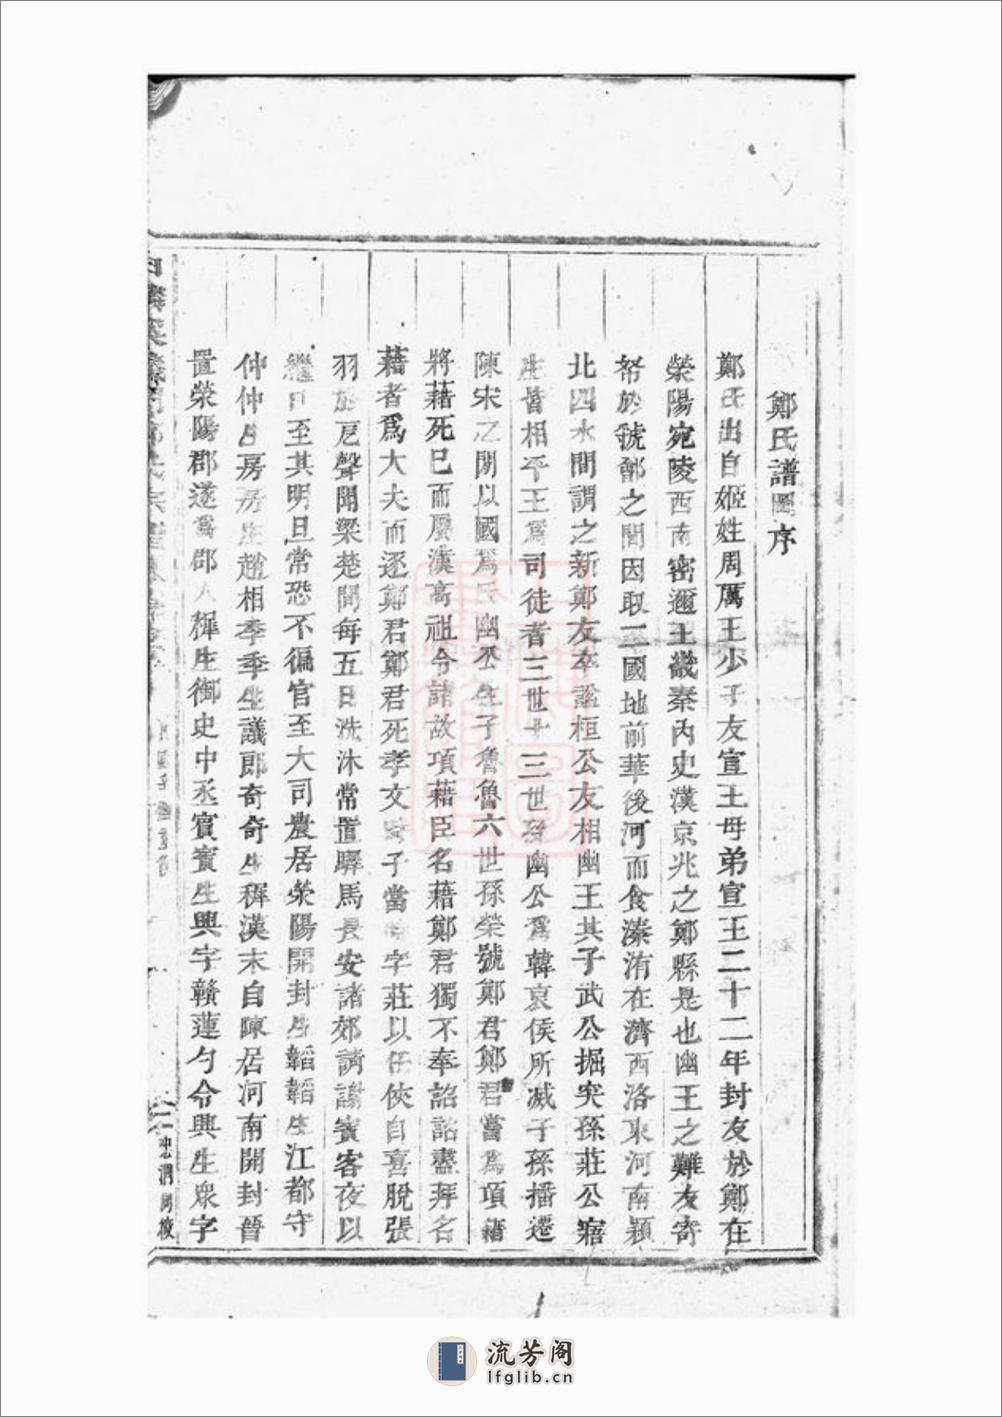 鄭氏譜圖序
鄭氏出自姬姓周厲王少子友宣王母弟宣王二十二年封友於鄭在
滎陽宛陵西南密邇王畿秦內史漢京兆之鄭縣是也幽王之難友寄
帑於虢鄶之間因取二國地前華後河而食溱洧在濟西洛東河南潁
北四水間謂之新鄭友卒謚桓公友相幽王其子武公掘突孫莊公寤
生皆相平王為司徒者三世十三世孫幽公為韓哀侯所滅子孫播遷
陳宋之間以國為氏幽公生子魯魯六世孫榮號鄭君鄭君嘗為項籍
將藉死巳而屬漢高祖令諸故項藉臣名藉鄭君獨不奉詔詔盡拜名
藉者爲大夫而逐鄭君鄭君死孝文時子當時字莊以任俠自喜脫張
羽於戹聲聞梁楚間每五日洗沐常置驛馬長安諸郊請謝賓客夜以
繼日至其明旦常恐不徧官至大司農居滎陽開封生韜韜生江都守
仲仲生房房生趙相季季生議郎奇奇生穉漢末自陳居河南開封晉
置滎陽郡遂為郡人穉生御史中丞賓賓生興字贛蓮勺令興生眾字
流芳阁
lfglib.cn